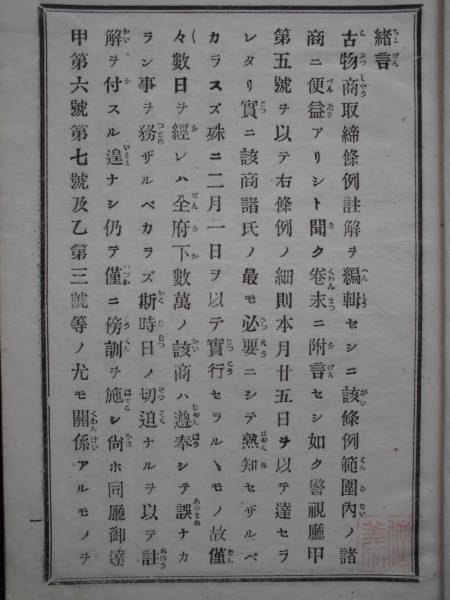 緒言
古物商取締條例註解ヲ編輯セシニ該條例範圍內ノ諸
商ニ便益アリシト聞ク卷末ニ附言セシ如ク警視廳甲
第五號ヲ以テ右條例ノ細則本月廿五日ヲ以テ達セラ
レタリ實ニ該商諸氏ノ最モ必要ニシテ熟知セザルベ
カラスズ殊ニ二月一日ヲ以テ實行セラルヽモノ故僅
々數日ヲ經レハ全府下數萬ノ該商ハ遵奉シテ誤ナカ
ラン事ヲ務ザルベカラズ斯時日ノ切迫ナルヲ以テ註
解ヲ付スル遑ナシ仍テ僅ニ傍訓ヲ施シ尙ホ同廳御達
甲第六號第七號及乙第三號等ノ尤モ關係アルモノヲ
一